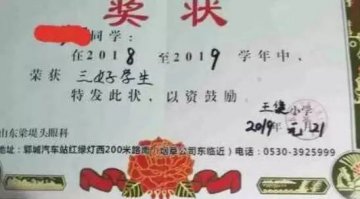 奖状
同学：
在2018至2019学年中，
荣获 三好学生
特发此状，以资鼓励
王堤小学
2019年元月21
山东梁堤头眼科
地址：郓城汽车站红绿灯西200米路南（烟草公司东临近）电话：0530-3925999